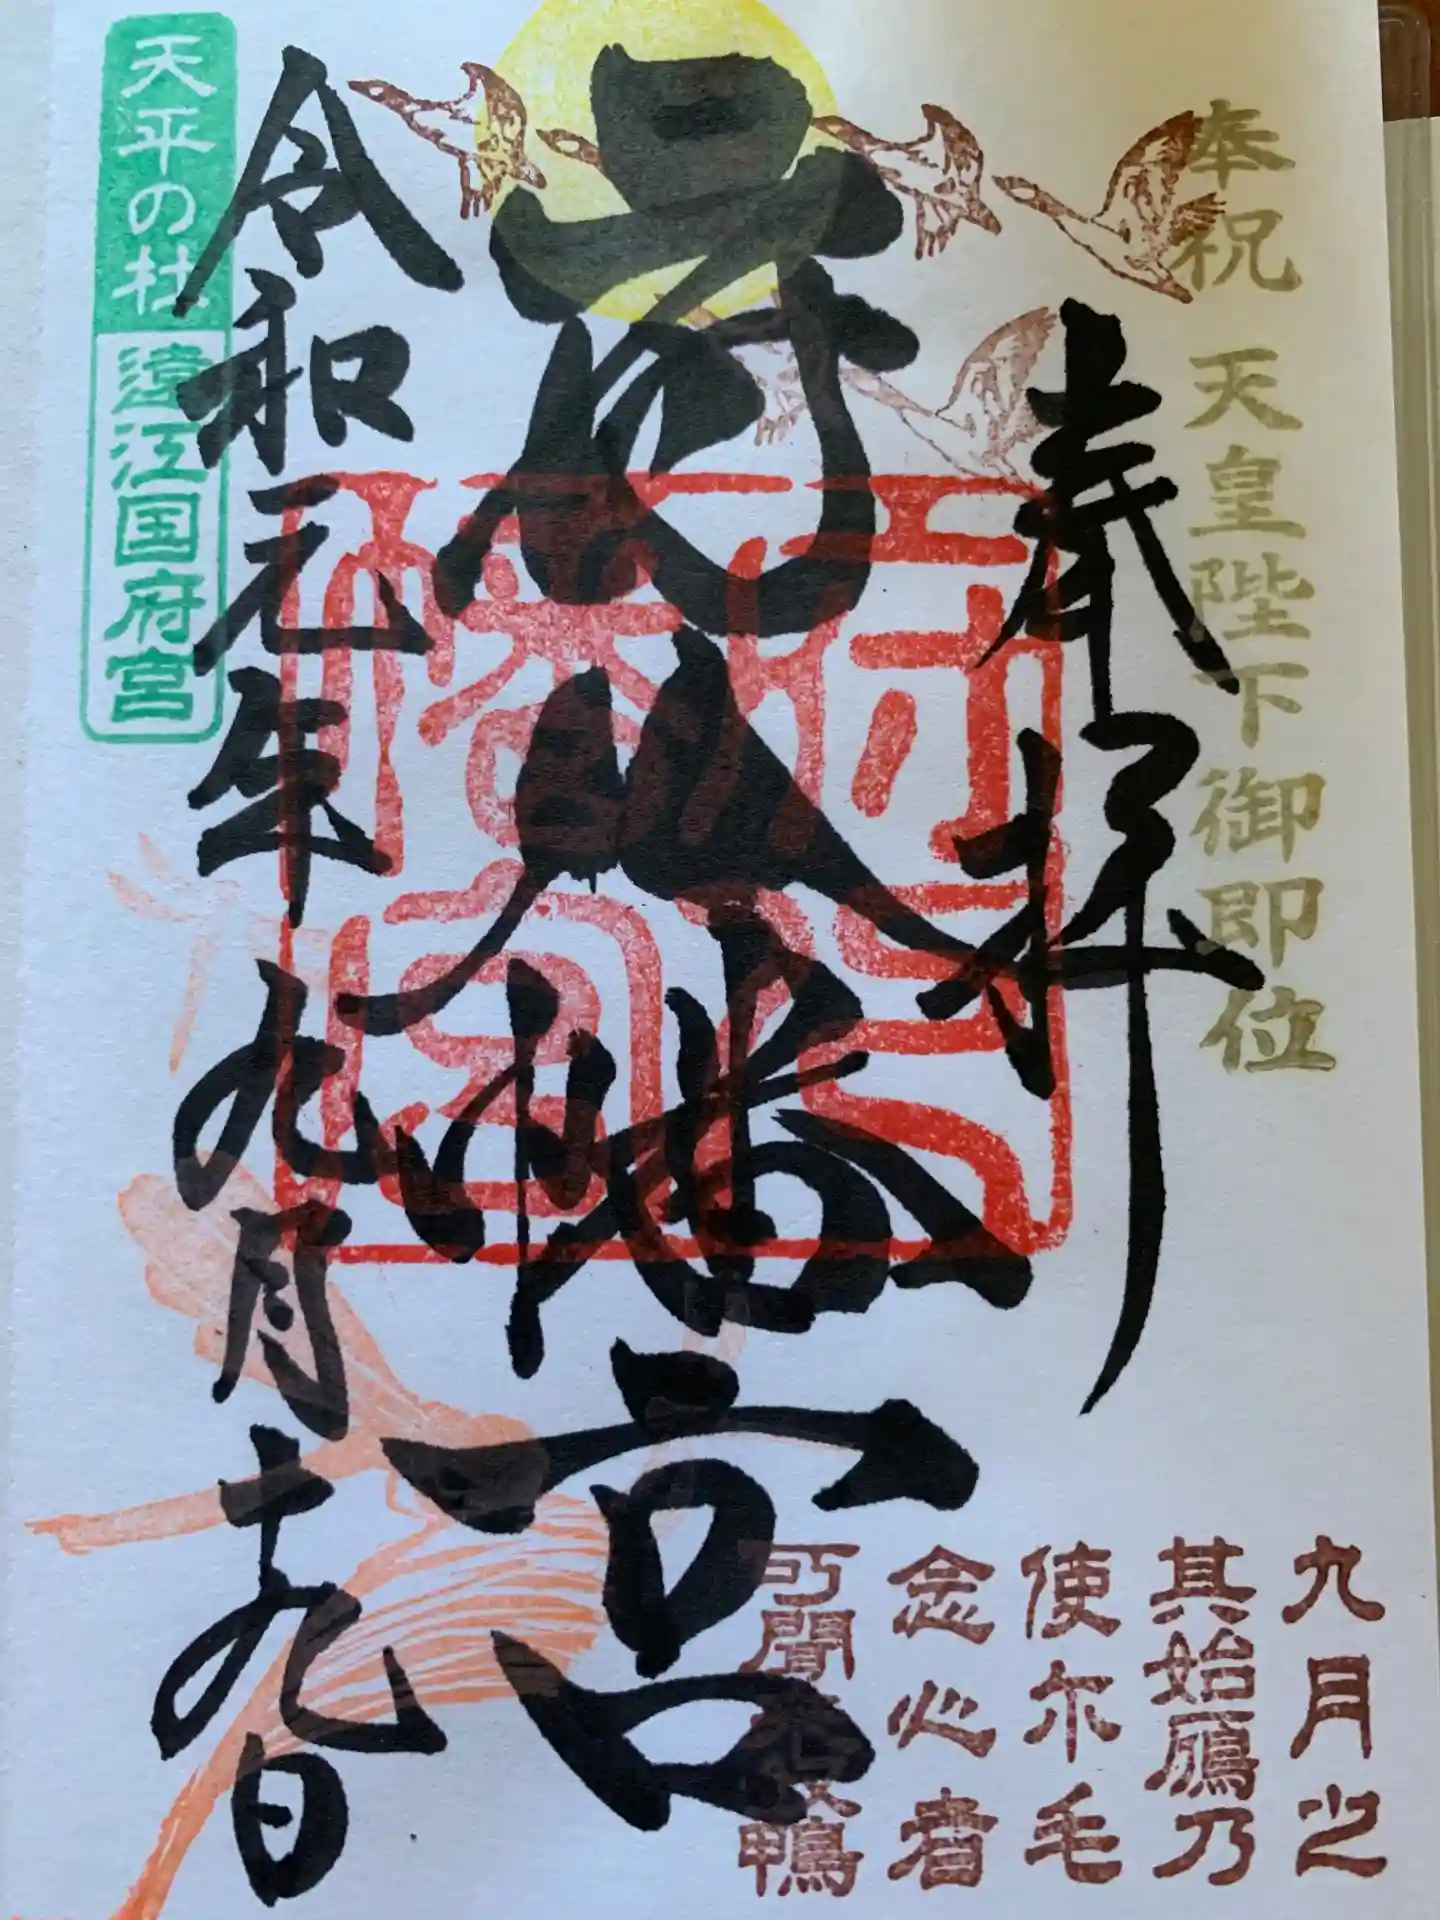 奉祝 天皇陛下 御即位
奉拝
府八幡宮
令和元年九月十九日
天平の杜
遠江国府宮
九月之
其始鴈乃
使尓毛
念心者
可聞来奴鴨